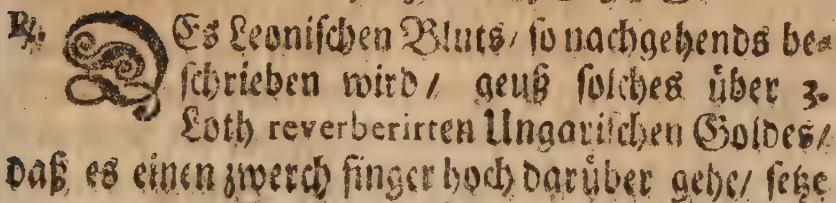 ℞. DEs Leonischen Bluts / so nachgehends be=
schrieben wird / geuß solches über 3.
Loth reverberirten Ungarischen Goldes /
daß es einen zwerch finger hoch darüber gehe / setze